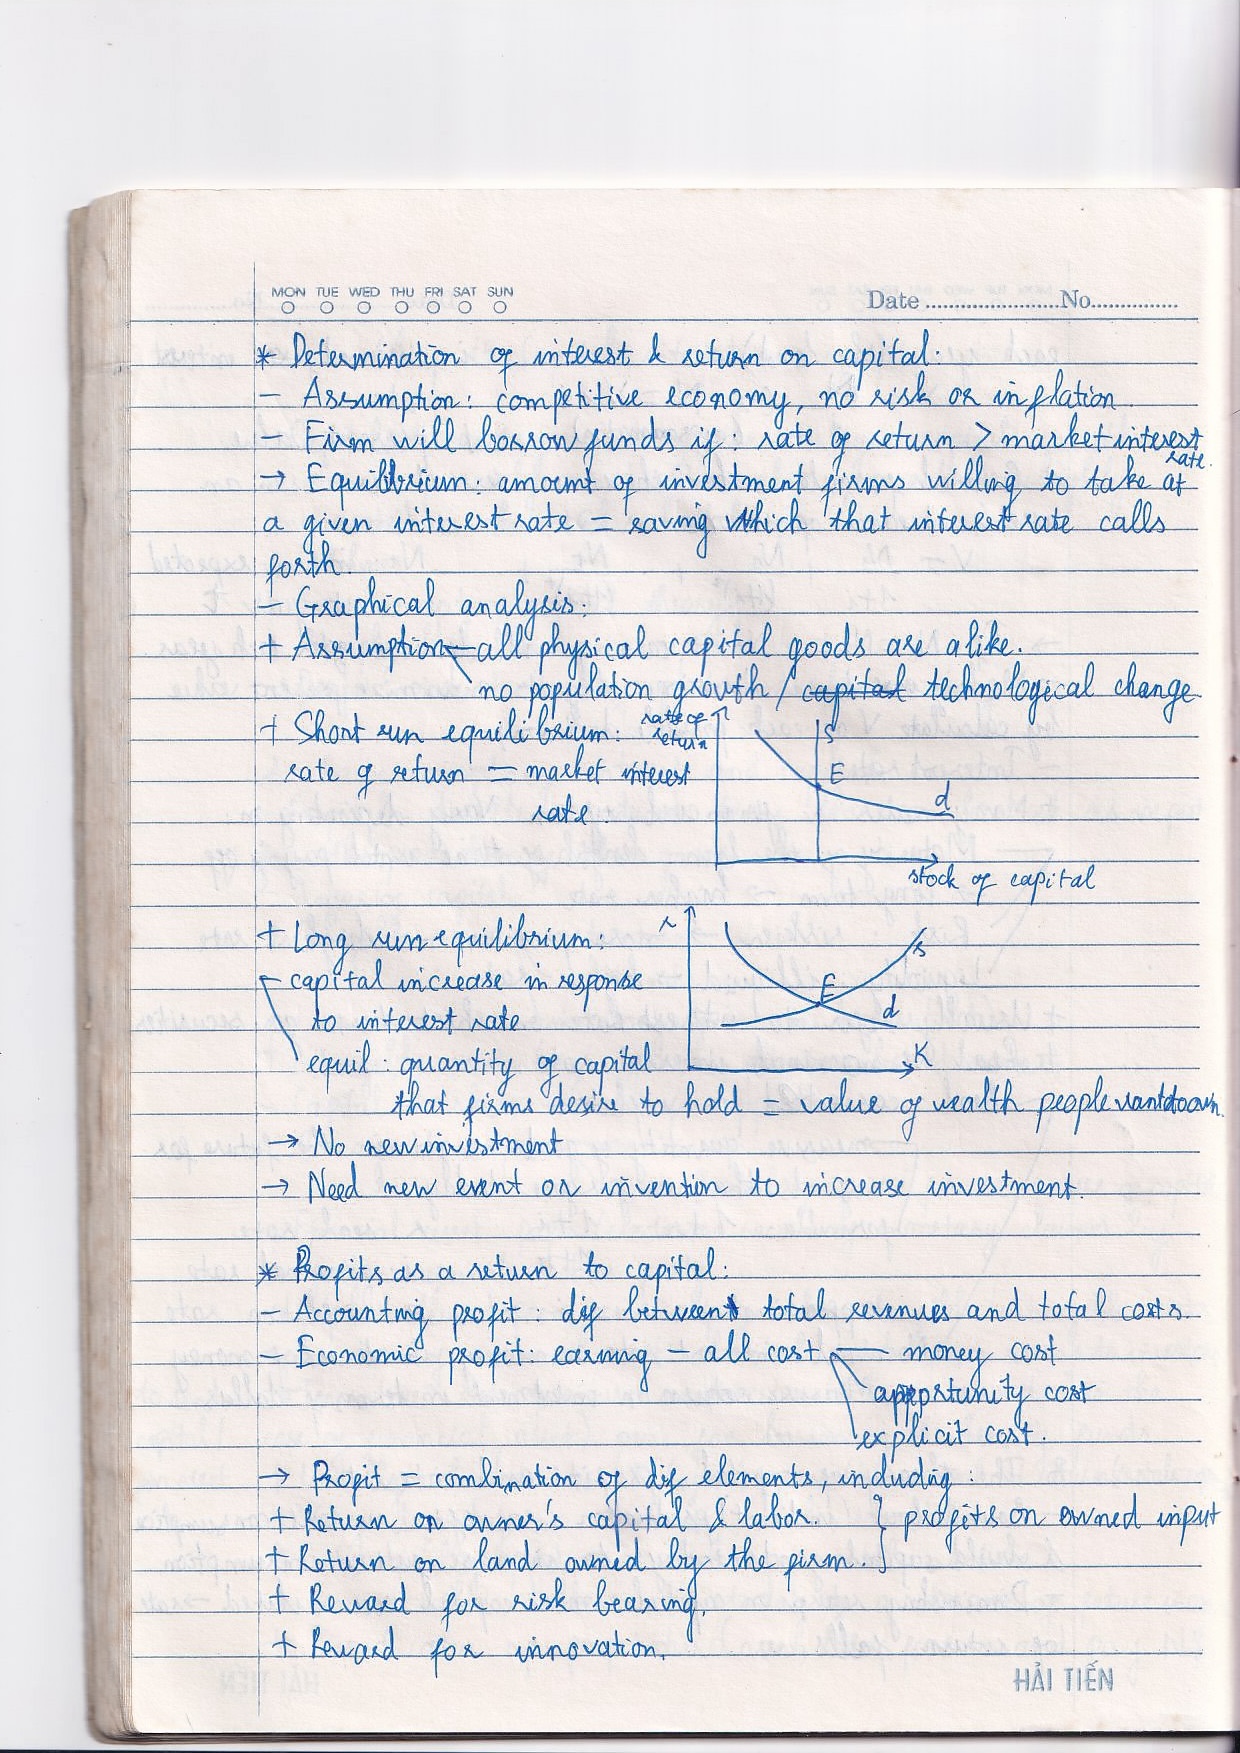 MON TUE WED THU FRI SAT SUN
Date ........................No................
* Determination of interest & return on capital:
- Assumption: competitive economy, no risk or inflation
- Firm will borrow funds if: rate of return > market interest rate.
→ Equilibrium: amount of investment firms willing to take at
a given interest rate = saving which that interest rate calls
forth.
- Graphical analysis:
+ Assumption - all physical capital goods are alike.
no population growth / capital technological change
+ Short run equilibrium:
rate of return = market interest
rate.
rate of
return
S
E
d
stock of capital
+ Long run equilibrium:
- capital increase in response
to interest rate
equil: quantity of capital
that firms desire to hold = value of wealth people want to own.
r
s
E
d
K
→ No new investment
→ Need new event or invention to increase investment.
* Profits as a return to capital:
- Accounting profit: dif between total revenues and total costs.
- Economic profit: earning - all cost - money cost
opportunity cost
explicit cost.
→ Profit = combination of dif elements, including:
+ Return on owner's capital & labor. } profits on owned input
+ Return on land owned by the firm.
+ Reward for risk bearing.
+ Reward for innovation.
HẢI TIẾN